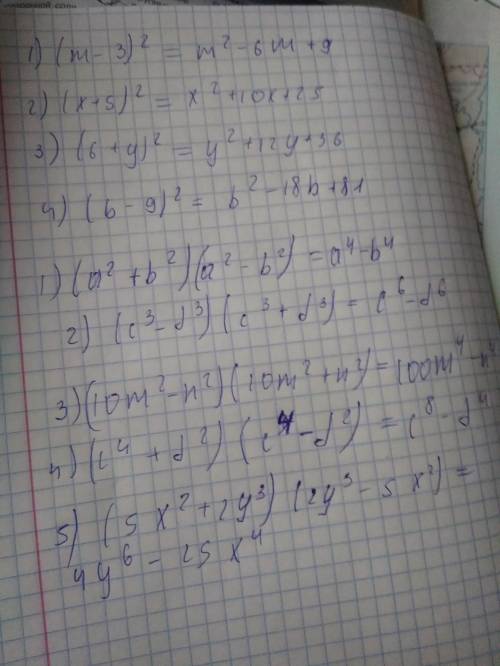 1) (m-3)² = m²-6m+9
2) (x+5)² = x²+10x+25
3) (6+y)² = y²+12y+36
4) (b-9)² = b²-18b+81
1) (a²+b²)(a²-b²)=a⁴-b⁴
2) (c³-d³)(c³+d³)= c⁶-d⁶
3) (10m²-n²)(10m²+n²)=100m⁴-n⁴
4) (c⁴+d²)(c⁴-d²) = c⁸-d⁴
5) (5x²+2y³)(2y³-5x²) =
4y⁶-25x⁴